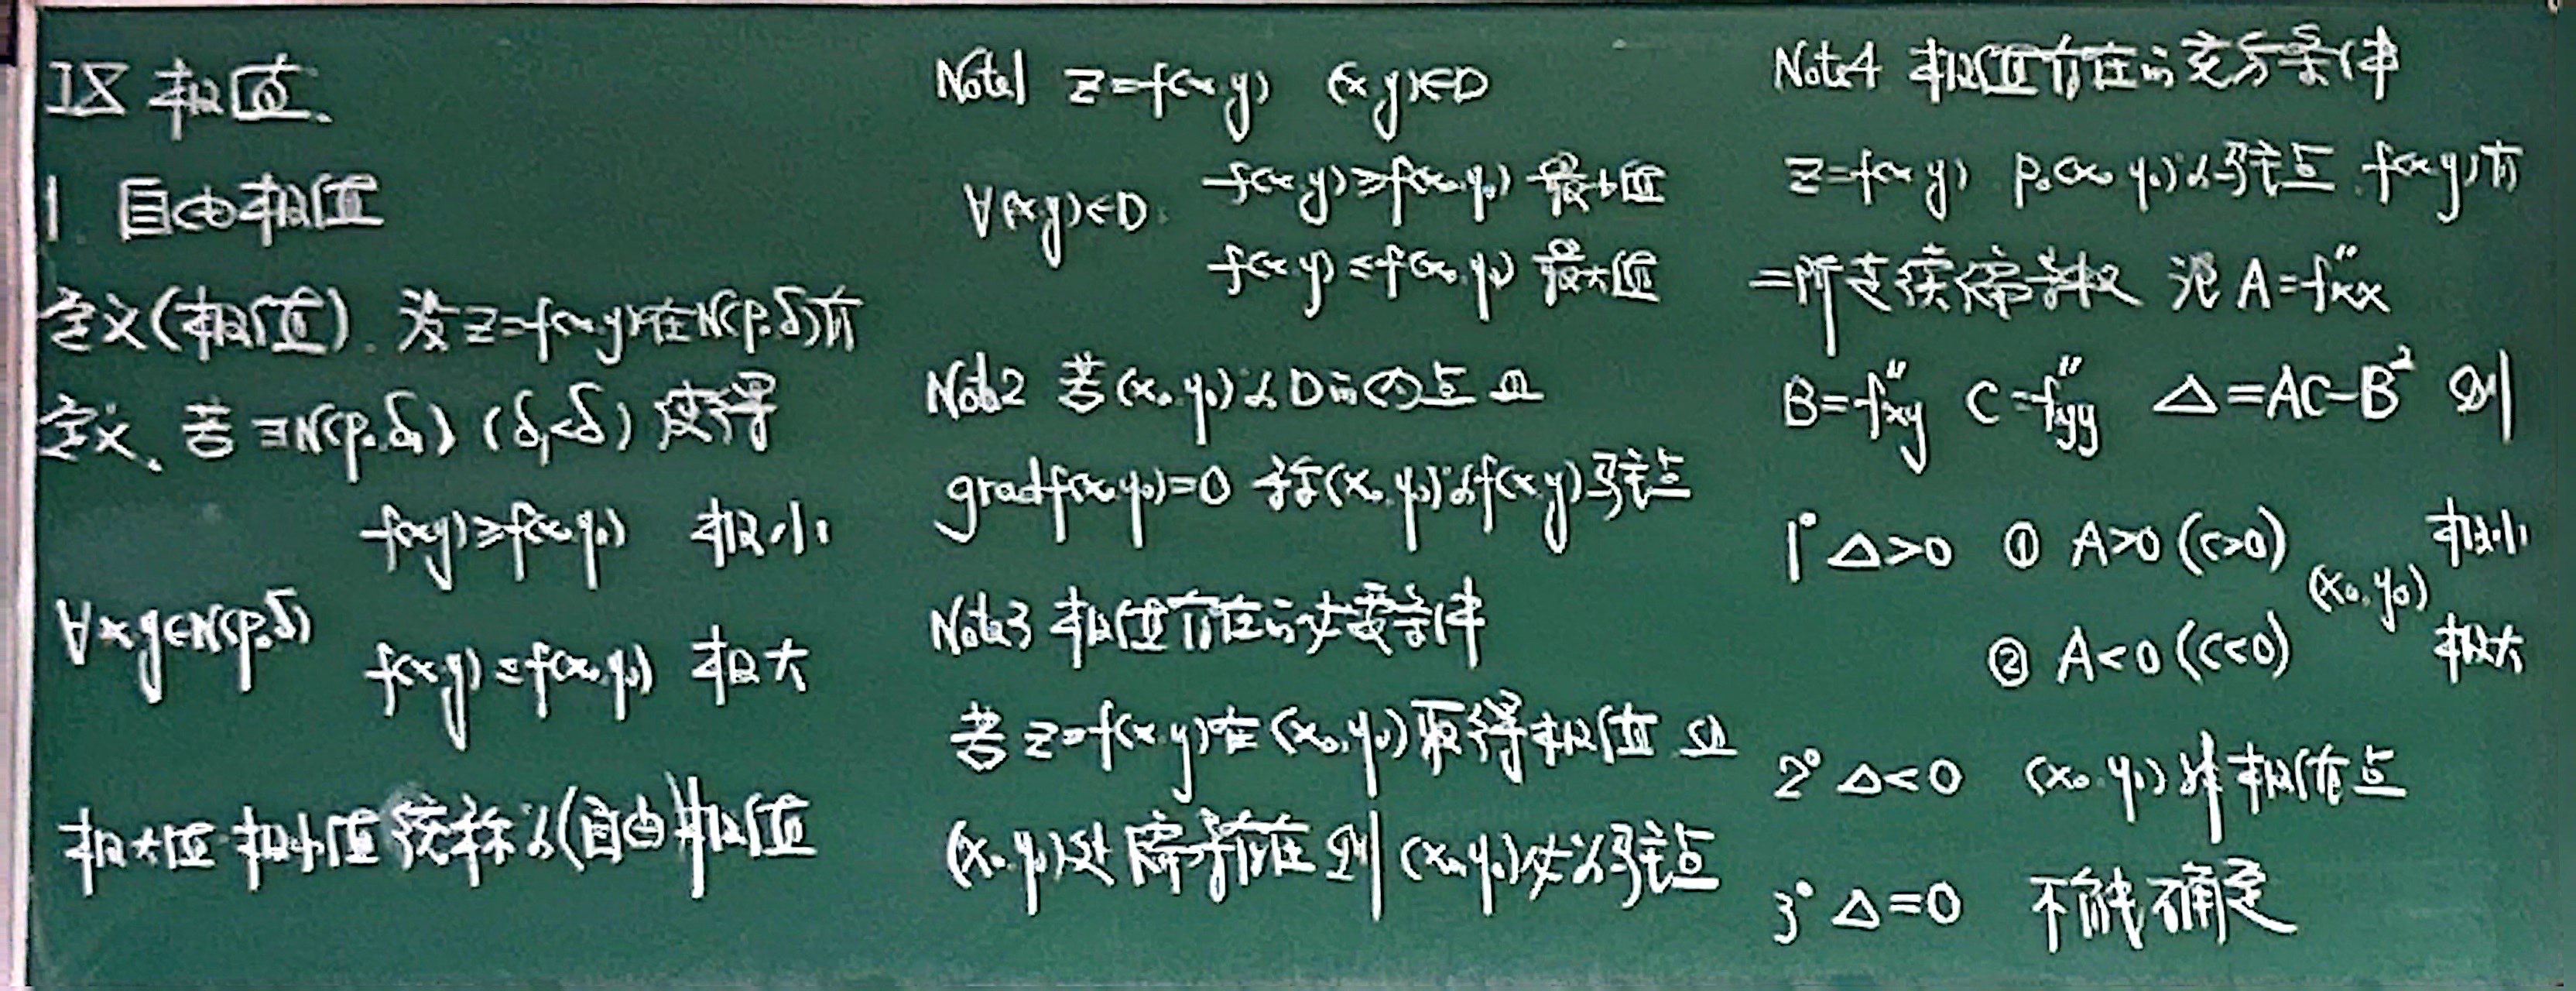 IX 极值.
1 自由极值
定义(极值). 设z=f(x,y)在N(p₀,δ)有
定义. 若∃N(p₀,δ₁) (δ₁<δ) 使得
f(x,y)≥f(x₀,y₀) 极小
∀x,y∈N(p₀,δ)
f(x,y)≤f(x₀,y₀) 极大
极大值 极小值 统称为(自由)极值
Note1 z=f(x,y) (x,y)∈D
f(x,y)≥f(x₀,y₀) 最小值
∀(x,y)∈D.
f(x,y)≤f(x₀,y₀) 最大值
Note2 若(x₀,y₀)为D的内点且
gradf(x₀,y₀)=0 称(x₀,y₀)为f(x,y)驻点
Note3 极值存在的必要条件
若z=f(x,y)在(x₀,y₀)取得极值 且
(x₀,y₀)处偏导存在 则(x₀,y₀)必为驻点
Note4 极值存在的充分条件
z=f(x,y) p₀(x₀,y₀)为驻点. f(x,y)有
二阶连续偏导数 记A=f″xx
B=f″xy C=f″yy Δ=AC-B² 则
1° Δ>0 ① A>0(C>0) 极小
(x₀,y₀)
② A<0(C<0) 极大
2° Δ<0 (x₀,y₀)非极值点
3° Δ=0 不能确定